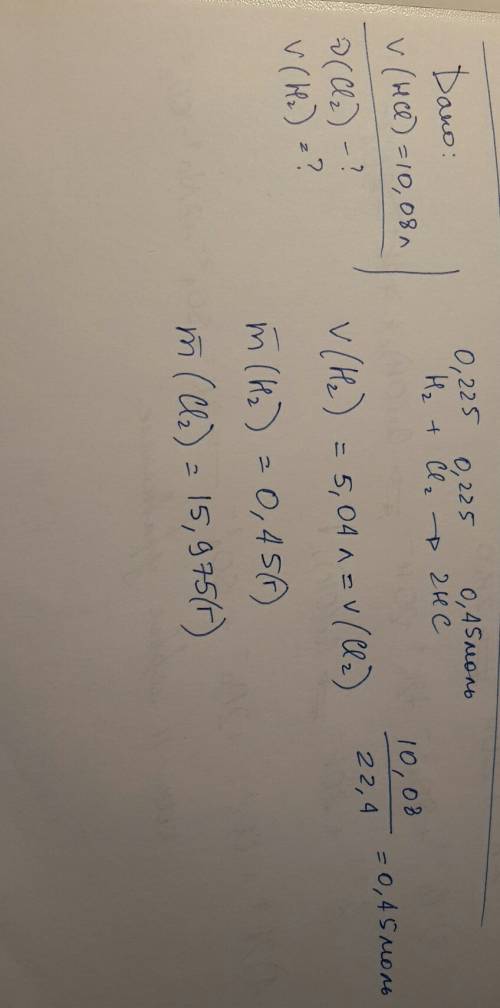 Дано:
V(HCl) = 10,08 л
ν(Cl₂) - ?
V(H₂) = ?
0,225 0,225 0,45 моль
H₂ + Cl₂ → 2HC
10,08
22,4
= 0,45 моль
V(H₂) = 5,04 л = V(Cl₂)
m̄(H₂) = 0,45(г)
m̄(Cl₂) = 15,975(г)